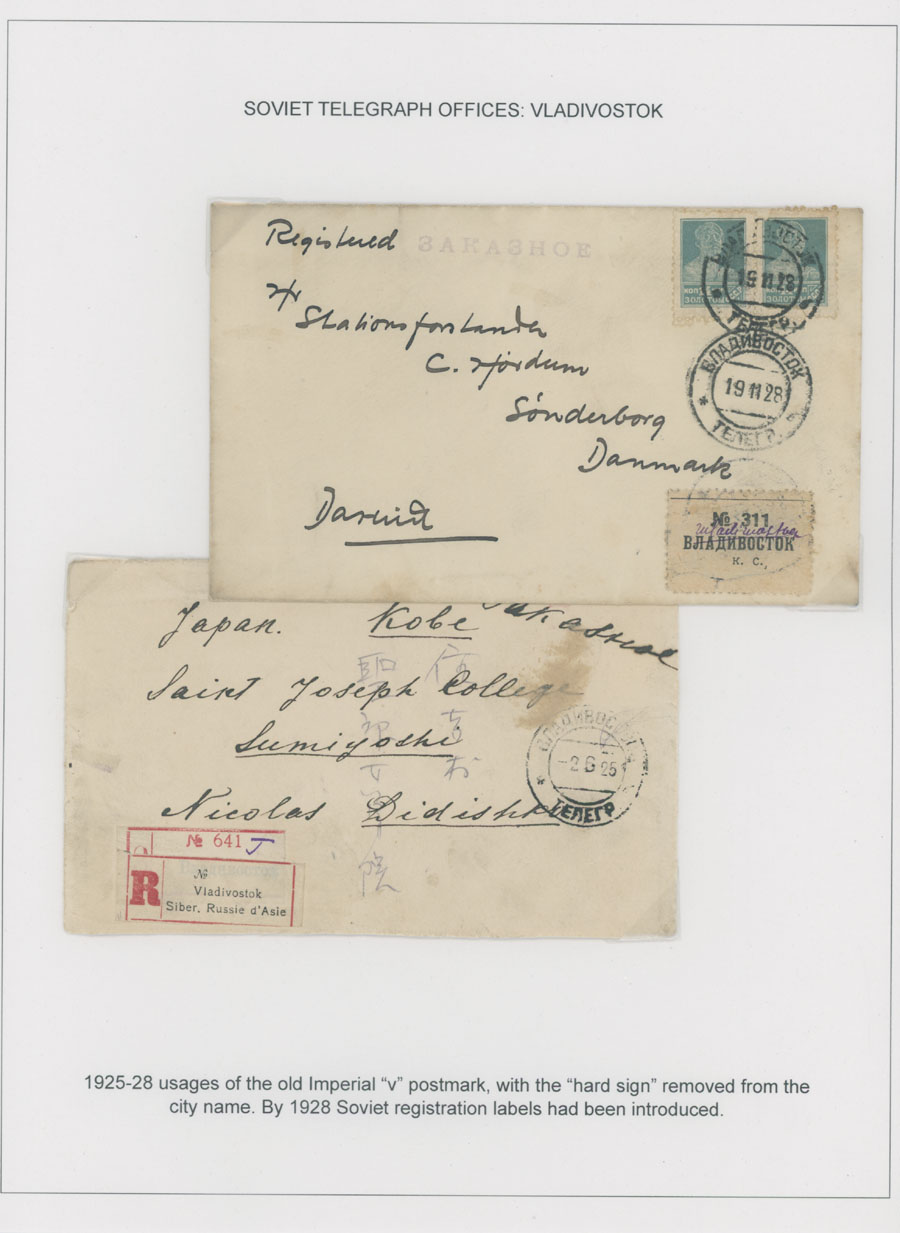 SOVIET TELEGRAPH OFFICES: VLADIVOSTOK
Registered
ЗАКАЗНОЕ
Stationsforstander
C. Hjördum
Sönderborg
Danmark
ЗОЛОТОМ
ЗОЛОТОМ
19 11 28
ТЕЛЕГР
ВЛАДИВОСТОК
19 11 28
ТЕЛЕГР.
№ 311
ВЛАДИВОСТОК
К. С.
Japan. Kobe
Saint Joseph College
Sumiyoshi
Nicolas
住吉村
ВЛАДИВОСТОК
-2 6 25
ТЕЛЕГР
№ 641
R
№
Vladivostok
Siber. Russie d'Asie
1925-28 usages of the old Imperial “v” postmark, with the “hard sign” removed from the
city name. By 1928 Soviet registration labels had been introduced.